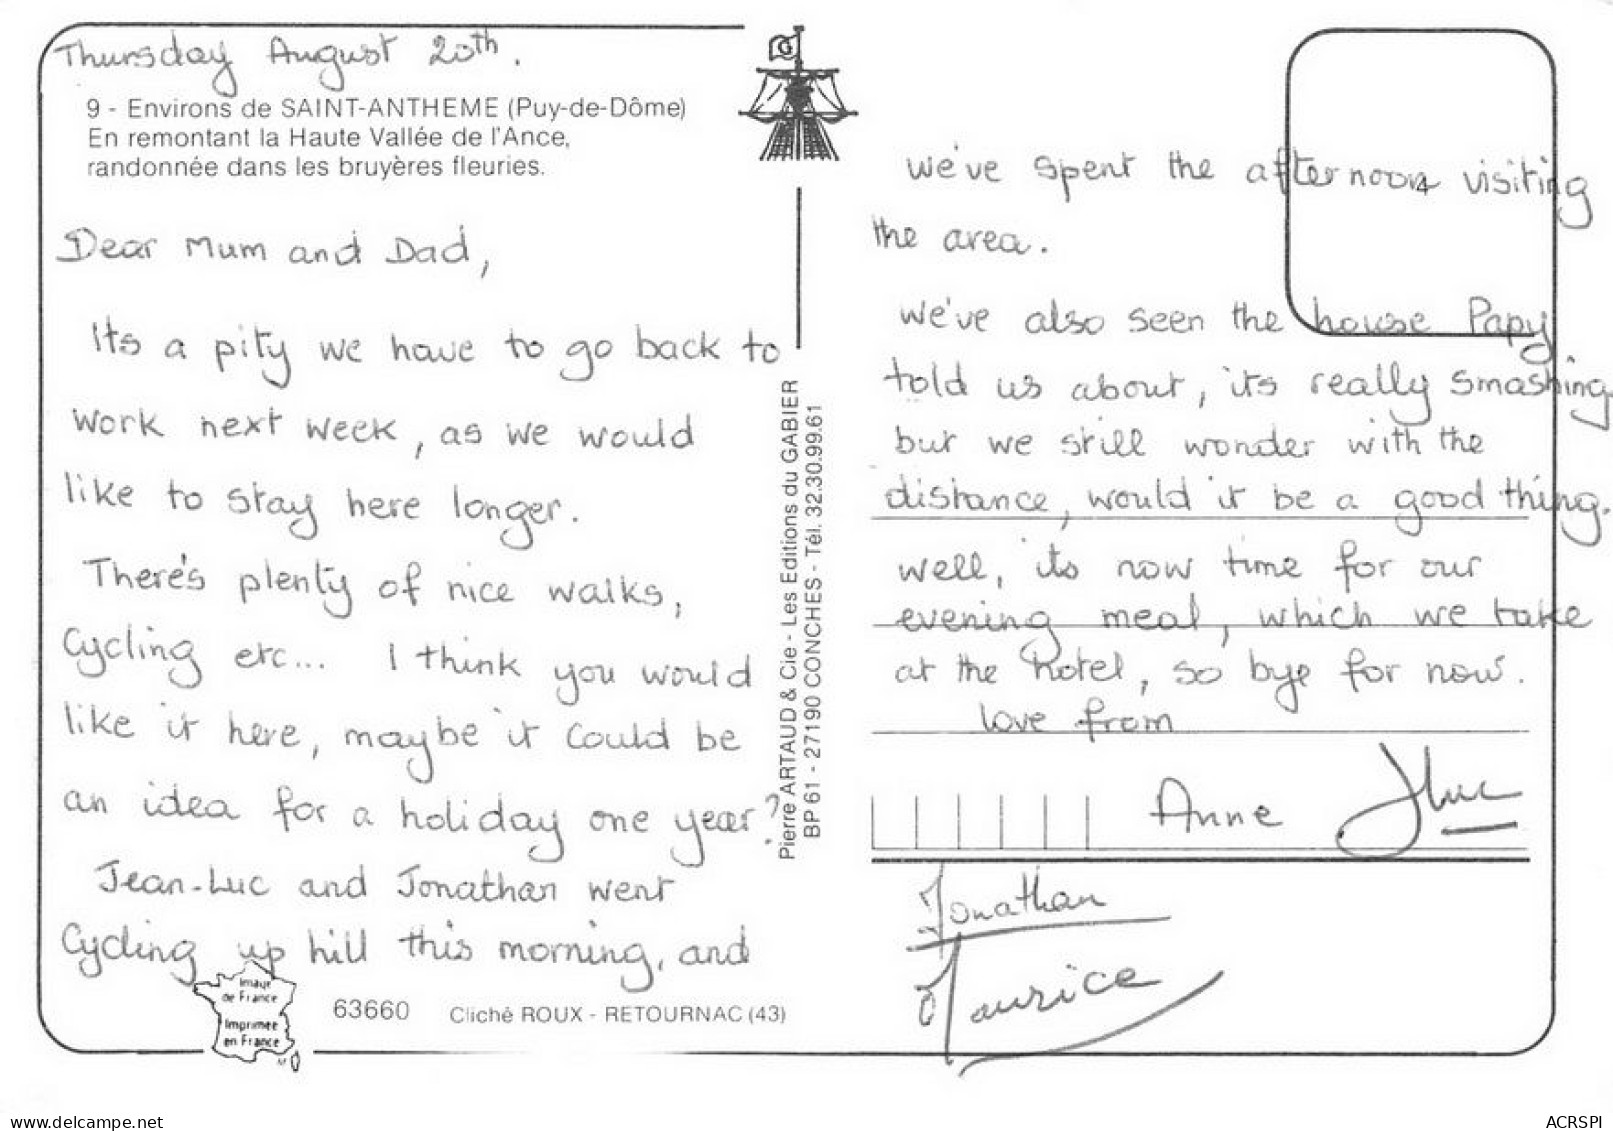 Thursday August 20th.
9 - Environs de SAINT-ANTHEME (Puy-de-Dôme)
En remontant la Haute Vallée de l'Ance,
randonnée dans les bruyères fleuries.
Dear Mum and Dad,
Its a pity we have to go back to
work next week, as we would
like to stay here longer.
There's plenty of nice walks,
Cycling etc... I think you would
like it here, maybe it could be
an idea for a holiday one year?
Jean-Luc and Jonathan went
Cycling up hill this morning, and
Image
de France
Imprimée
en France
63660 Cliché ROUX - RETOURNAC (43)
Pierre ARTAUD & Cie - Les Editions du GABIER
BP 61 - 27190 CONCHES - Tél. 32.30.99.61
G
we've spent the afternoon visiting
the area.
We've also seen the house Papy
told us about, its really smashing
but we still wonder with the
distance, would it be a good thing.
well, its now time for our
evening meal, which we take
at the hotel, so bye for now.
love from
Anne JLuc
Jonathan
Maurice
delcampe.net
ACRSPI